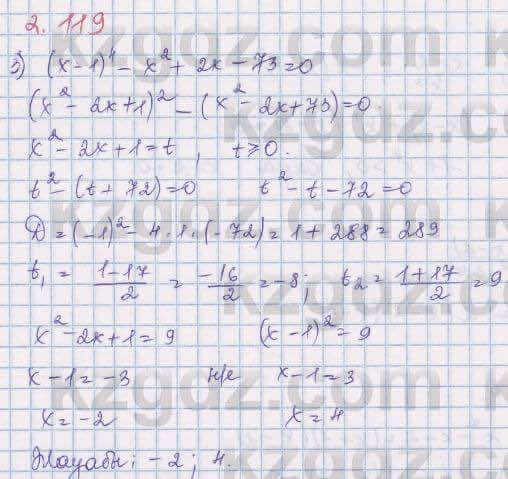 2.119
3) (x-1)⁴ - x² + 2x - 73 = 0
(x² - 2x + 1)² - (x² - 2x + 73) = 0
x² - 2x + 1 = t, t ≥ 0.
t² - (t + 72) = 0 t² - t - 72 = 0
D = (-1)² - 4·1·(-72) = 1 + 288 = 289
t₁ = (1-17)/2 = -16/2 = -8; t₂ = (1+17)/2 = 9
x² - 2x + 1 = 9 (x - 1)² = 9
x - 1 = -3 н/е x - 1 = 3
x = -2 x = 4
Жауабы: -2; 4.
kzgdz.com